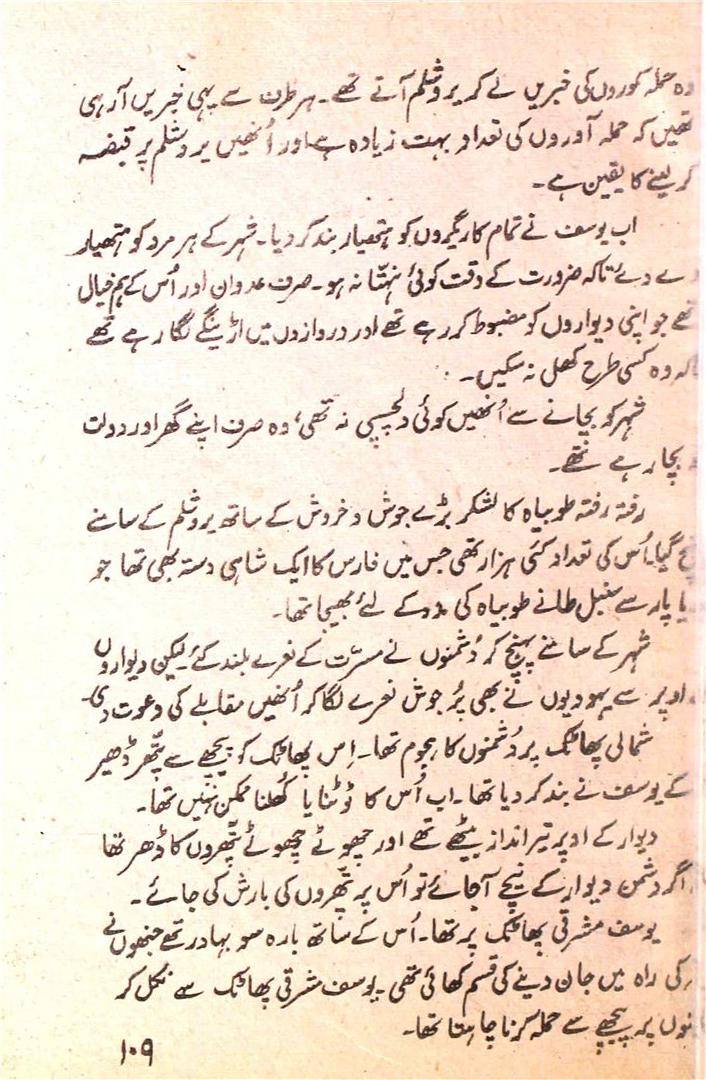 وہ حملہ کوروں کی خبریں لے کر یروشلم آتے تھے۔ ہر طرف سے یہی خبریں آ رہی
تھیں کہ حملہ آوروں کی تعداد بہت زیادہ ہے اور اُنھیں یروشلم پر قبضہ
کر لینے کا یقین ہے۔
اب یوسف نے تمام کاریگروں کو ہتھیار بند کر دیا۔ شہر کے ہر مرد کو ہتھیار
دے دئے تاکہ ضرورت کے وقت کوئی نہتّا نہ ہو۔ صرف عدوان اور اُس کے ہم خیال
تھے جو اپنی دیواروں کو مضبوط کر رہے تھے اور دروازوں میں اڑینگے لگا رہے تھے
تاکہ وہ کسی طرح کھل نہ سکیں۔
شہر کو بچانے سے اُنھیں کوئی دلچسپی نہ تھی، وہ صرف اپنے گھر اور دولت
بچا رہے تھے۔
رفتہ رفتہ طوبیاہ کا لشکر بڑے جوش و خروش کے ساتھ یروشلم کے سامنے
پہنچ گیا۔ اُس کی تعداد کئی ہزار تھی جس میں فارس کا ایک شاہی دستہ بھی تھا جو
پار سے سنبل طا نے طوبیاہ کی مدد کے لئے بھیجا تھا۔
شہر کے سامنے پہنچ کر دُشمنوں نے مسرّت کے نعرے بلند کئے۔ لیکن دیواروں
اوپر سے یہودیوں نے بھی پُرجوش نعرے لگا کر اُنھیں مقابلے کی دعوت دی۔
شمالی پھاٹک پر دُشمنوں کا ہجوم تھا۔ اِس پھاٹک کو پیچھے سے پتّھر ڈھیر
کے یوسف نے بند کر دیا تھا۔ اب اُس کا ٹوٹنا یا کُھلنا ممکن نہیں تھا۔
دیوار کے اوپر تیر انداز بیٹھے تھے اور چھوٹے چھوٹے پتّھروں کا ڈھر تھا
اگر دشمن دیوار کے نیچے آ جائے تو اُس پر پتّھروں کی بارش کی جائے۔
یوسف مشرقی پھاٹک پر تھا۔ اُس کے ساتھ بارہ سو بہادر تھے جنھوں نے
کی راہ میں جان دینے کی قسم کھائی تھی۔ یوسف مشرقی پھاٹک سے نکل کر
پر پیچھے سے حملہ کرنا چاہتا تھا۔
۱۰۹